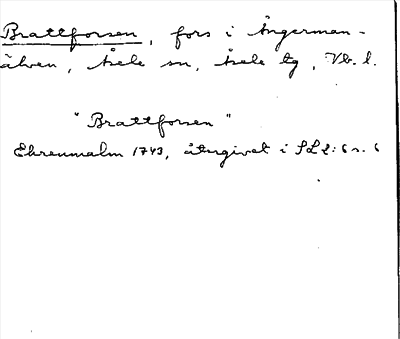 Brattforsen, fors i Ångerman-
älven, Åsele sn, Åsele lg, Vb. l.
"Brattforsen"
Ehrenmalm 1743, återgivet i SLL: 6 s. 6